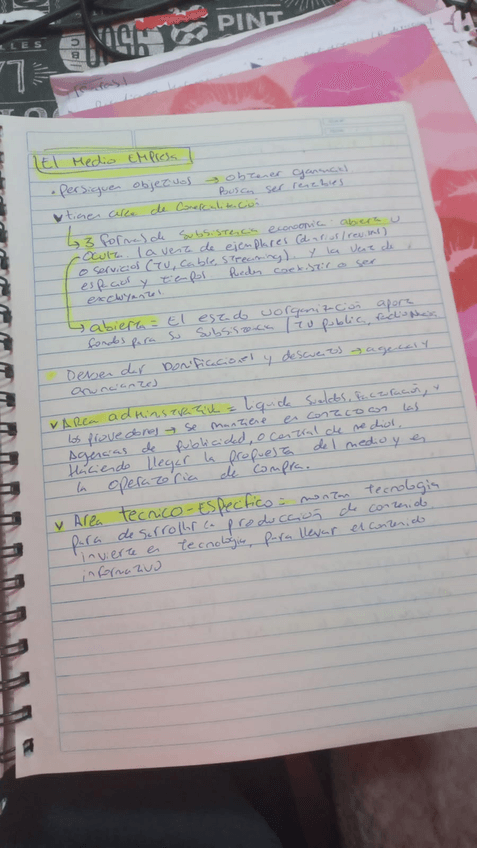 PINT
CASH
El Medio Empresa
• Persiguen objetivos → obtener ganancias
Buscan ser rentables
tienen area de Comercialización
↳ 3 formas de subsistencia economica: abierta u
oculta. la venta de ejemplares (diarios/revistas)
o servicios (TV, cable, streaming). y la venta de
espacios y tiempos Pueden coexistir o ser
excluyentes.
→ abierta = El estado u organización aporta
fondos para su subsistencia (TV publica,
• Deben dar Bonificaciones y descuentos → agencias y
anunciantes
Area administrativa = Liquida sueldos, facturación, y
los proveedores → se mantiene en contacto con las
Agencias de Publicidad, o central de medios,
Haciendo llegar la propuesta del medio y en
la operatoria de compra.
Area tecnico-especifico = montan tecnologia
para desarrollar la producción de contenido
invierte en tecnologia, para llevar el contenido
informativo